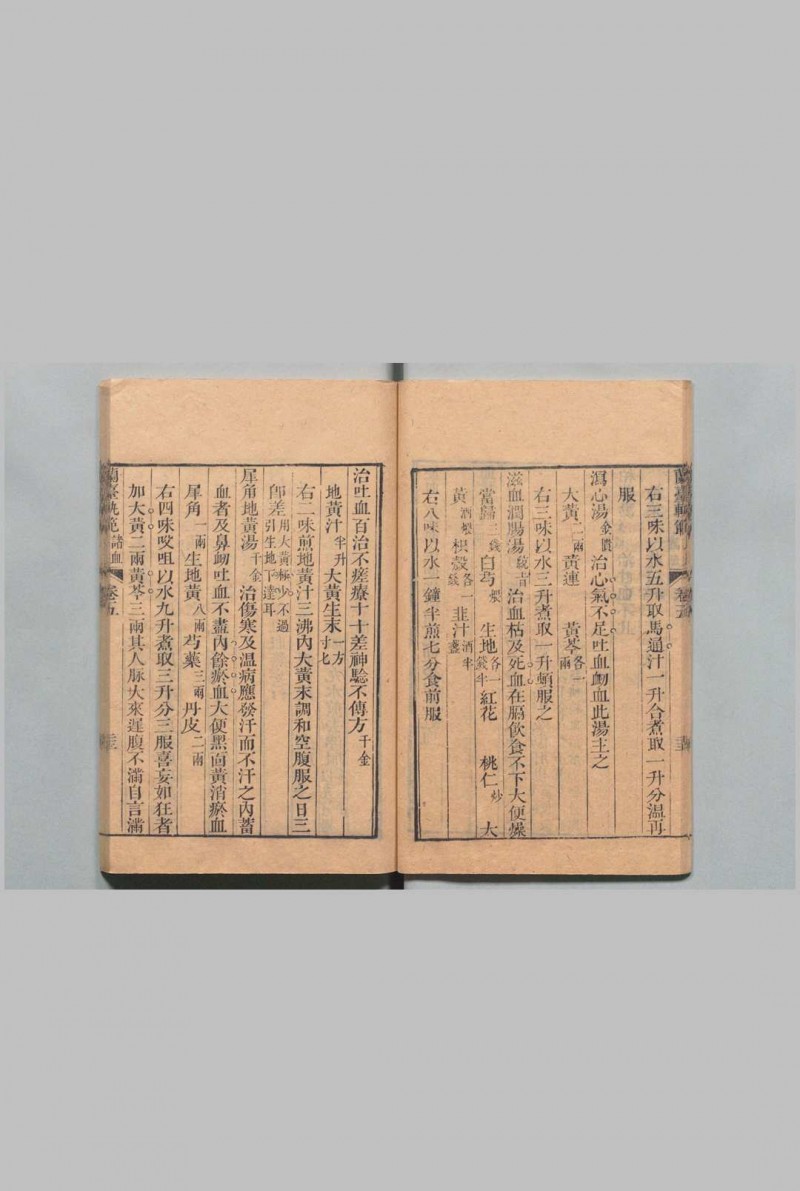 右三味以水五升取馬通汁一升合煮取一升分溫再
服
瀉心湯金匱 治心氣不足吐血衂血此湯主之
大黃二兩 黃連 黃芩各一兩
右三味以水三升煮取一升頓服之
滋血潤腸湯統旨 治血枯及死血在膈飲食不下大便燥
當歸三錢 白芍煨 生地各一錢半 紅花 桃仁炒 大
黃酒煨 枳殼各一錢 韭汁酒半盞
右八味以水一鐘半煎七分食前服
治吐血百治不瘥療十十差神驗不傳方千金
地黃汁半升 大黃生末一方寸匕
右二味煎地黃汁三沸內大黃末調和空腹服之日三
即差用大黃極少不過引生地下達耳
犀角地黃湯千金 治傷寒及溫病應發汗而不汗之內蓄
血者及鼻衂吐血不盡內餘瘀血大便黑面黃消瘀血
犀角一兩 生地黃八兩 芍藥三兩 丹皮二兩
右四味㕮咀以水九升煮取三升分三服喜妄如狂者
加大黃二兩黃芩三兩其人脉大來遲腹不滿自言滿
蘭臺軌範 諸血 卷之五